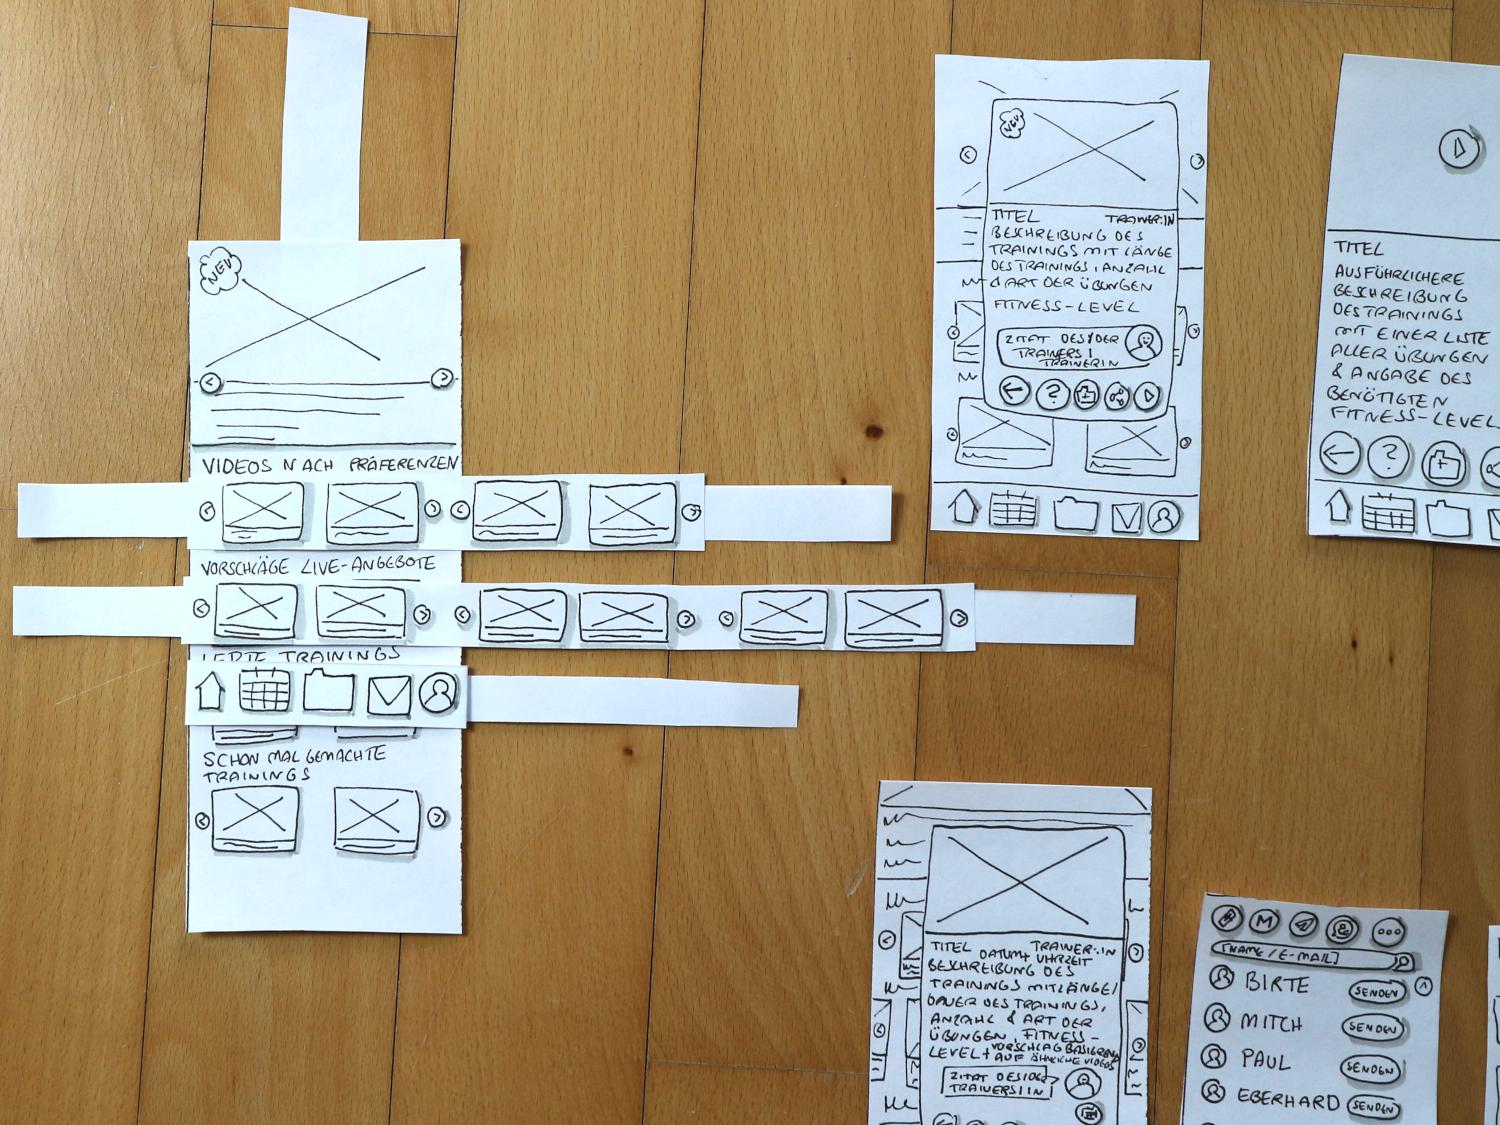 NEW
VIDEOS NACH PRÄFERENZEN
VORSCHLÄGE LIVE-ANGEBOTE
TRAININGS
SCHON MAL GEMACHTE
TRAININGS
NEU
TITEL TRAINER:IN
BESCHREIBUNG DES
TRAININGS MIT LÄNGE
DES TRAININGS, ANZAHL
& ART DER ÜBUNGEN
FITNESS-LEVEL
ZITAT DES/DER
TRAINERS/
TRAINERIN
?
TITEL
AUSFÜHRLICHERE
BESCHREIBUNG
DES TRAININGS
MIT EINER LISTE
ALLER ÜBUNGEN
& ANGABE DES
BENÖTIGTEN
FITNESS-LEVEL
?
TITEL TRAINER:IN
DATUM+ UHRZEIT
BESCHREIBUNG DES
TRAININGS MIT LÄNGE/
DAUER DES TRAININGS,
ANZAHL & ART DER
ÜBUNGEN, FITNESS-
LEVEL + VORSCHLAG BASIEREND
AUF ÄHNLICHE VIDEOS
ZITAT DES/DER
TRAINERS/IN
M
[NAME/E-MAIL]
BIRTE SENDEN
MITCH SENDEN
PAUL SENDEN
EBERHARD SENDEN